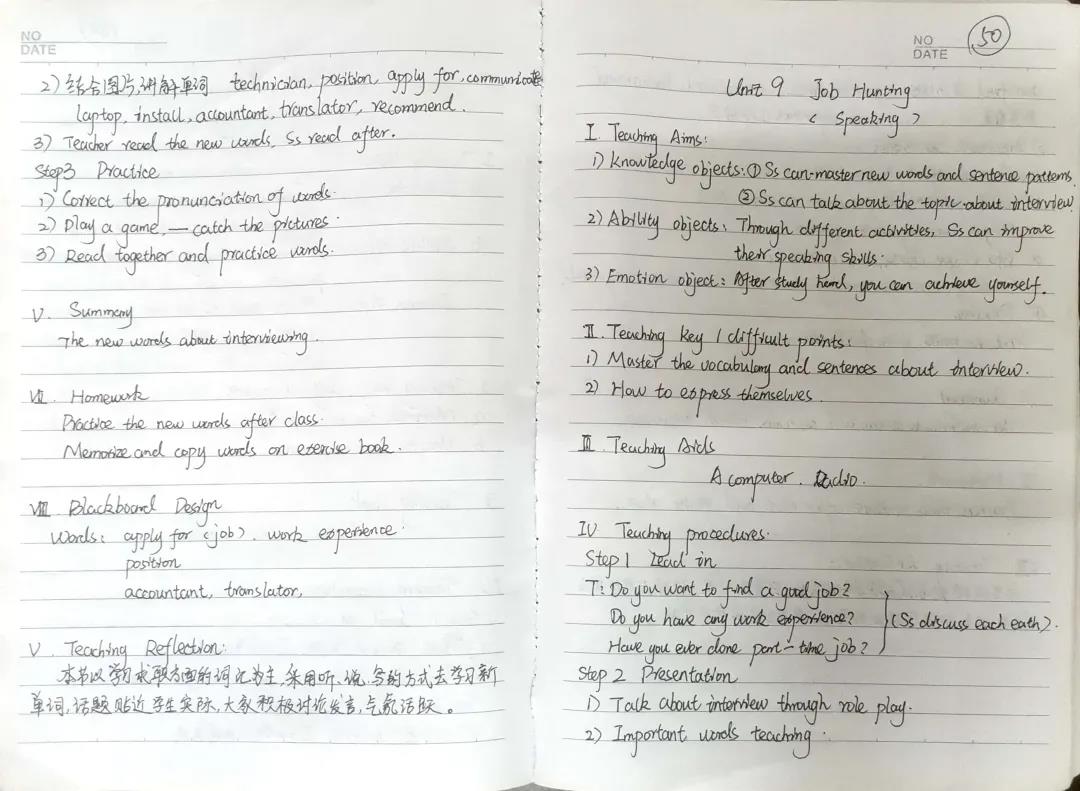 NO
DATE
2) 结合图片,讲解单词 technician, position, apply for, communicate
laptop, install, accountant, translator, recommend.
3) Teacher read the new words, Ss read after.
Step3 Practice
1) Correct the pronunciation of words.
2) Play a game. — catch the pictures.
3) Read together and practice words.
V. Summary
The new words about interviewing.
VII. Homework
Practice the new words after class.
Memorize and copy words on exercise book.
VIII. Blackboard Design
Words: apply for (job). work experience.
position
accountant, translator,
V. Teaching Reflection:
本节以学习求职方面的词汇为主,采用听、说、写的方式去学习新
单词,话题贴近学生实际,大家积极讨论发言,气氛活跃。
NO
DATE
50
Unit 9 Job Hunting
(Speaking)
I. Teaching Aims:
1) Knowledge objects: ① Ss can master new words and sentence patterns.
② Ss can talk about the topic about interview.
2) Ability objects: Through different activities, Ss can improve
their speaking skills.
3) Emotion object: After study hard, you can achieve yourself.
II. Teaching key / difficult points:
1) Master the vocabulary and sentences about interview.
2) How to express themselves.
III. Teaching Aids
A computer. Radio.
IV Teaching procedures.
Step 1 Lead in
T: Do you want to find a good job?
Do you have any work experience? (Ss discuss each eath).
Have you ever done part-time job?
Step 2 Presentation
1) Talk about interview through role play.
2) Important words teaching.